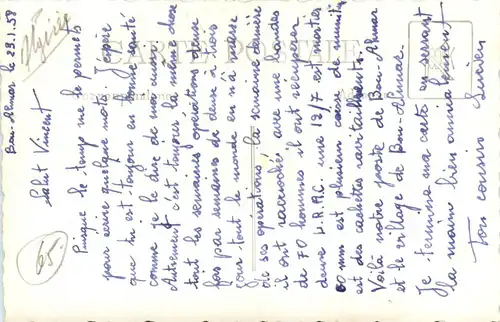 Algérie
Bou-Alhmar le 23.1.58
Salut Vincent
Puisque le temps me le permets
pour ecrire quelque mots. J'espère
que tu est toujour en bonne santé
comme je le dire de même.
Actuement c'est toujour la même chose
tout les semaines operations deux
fois par semaines de deux à trois
jour tout le monde en n'à marre
de ses operations la semaine dernière
il ont accrocher avec une bandes
de 70 hommes il ont recuperer
deux F.M.A.C. une 12/7 est mortier
60 mm est plusieur caisse de munitions
est des cachettes ravitaillements
Voilà notre poste de Bou-Alhmar
et le village de Bou-Alhmar.
Je termine ma carte en serrant
la main bien amicalement
Ton cousin Lucien
65.
CARTE POSTALE